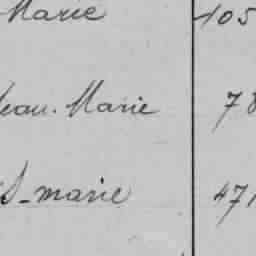 Marie 105
Jean-Marie 78
S-marie 471